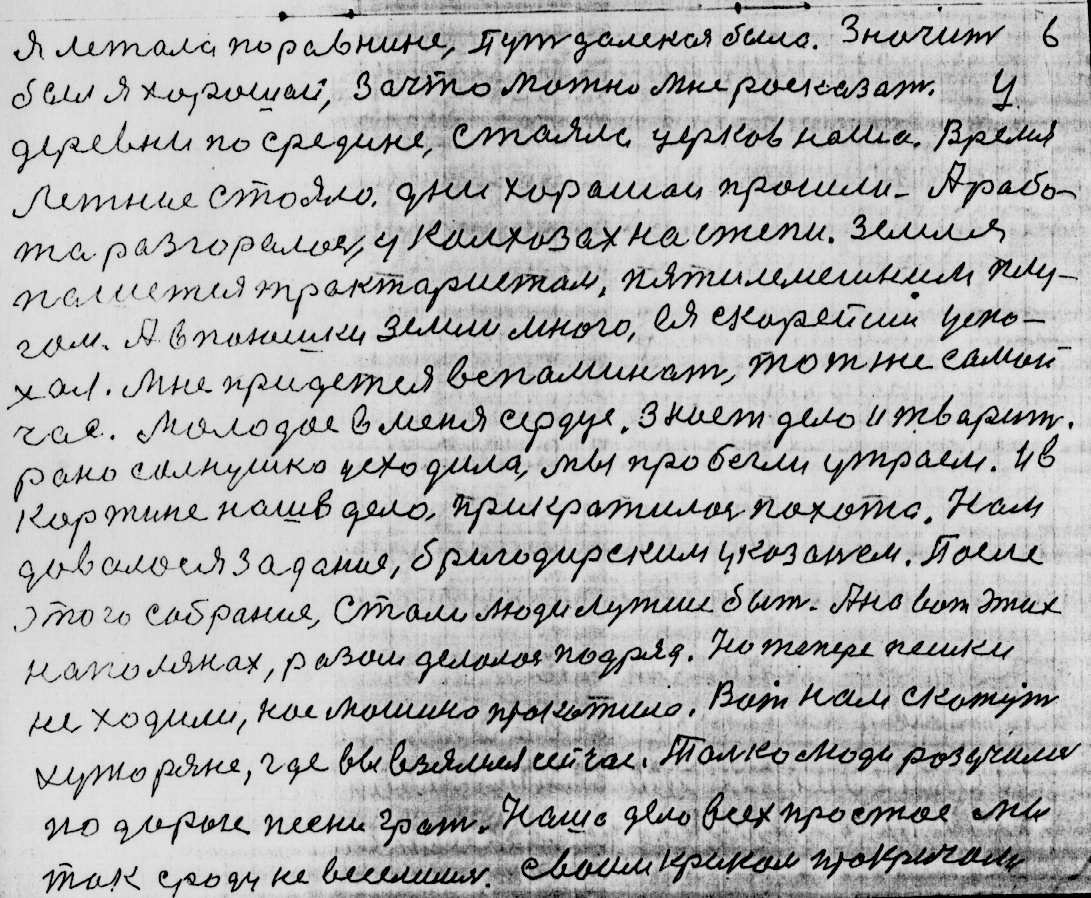 я летала поравнине, Пут далекая была. Значит 6
был я хороший, Зачтоможно мне росказат. У
деревни по средине, стаяла церков наша. Время
летние стояло. дни хорашаи прошли- А рабо-
та разгоралося, у Калхозах на степи. Земля
пашется трактаристам, пятилемешним плу-
гом. А в паношки земли много, ея скарейший успо-
хал. Мне придется вспаминат, тот же самой
час. Молодое в меня сердце. Знает дело и тварит.
рано солнушко усходила, мы пробегли утраем. И в
Картине нашв дело, прикратилося похота. Нам
довалося задание, бригодирским указанем. После
этого собрания, Стали люди лутше быт. Ана вот этих
на полянах, разом делолося подряд. Но теперe пешки
не ходили, нас машина прокотила. Вот нам скажут
хуторяне, где вы взялися сейчас. Толко люди розучили
по дороге песни грат. Наше дело всех простое мы
так сроду не веселился. своим криком прокричали